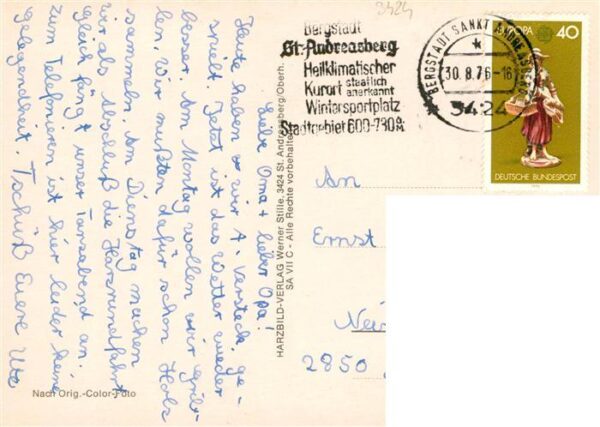 Liebe Oma + lieber Opa!
Heute haben wir 1. Versteck ge-
spielt. Jetzt ist das Wetter wieder
besser. Am Montag wollen wir gril-
len. Wir mußten dafür schon Holz
sammeln. Am Dienstag machen
wir als Abschluß die Harzrundfahrt
Gleich fängt unser Tanzabend an.
Zum Telefonieren ist hier leider keine
Gelegenheit. Tschüß Euere Ute
Nach Orig.-Color-Foto
HARZBILD-VERLAG Werner Stille, 3424 St. Andreasberg/Oberh.
SA VII C - Alle Rechte vorbehalten
3424
Bergstadt
St. Andreasberg
Heilklimatischer
Kurort staatlich anerkannt
Wintersportplatz
Stadtgebiet 600-730
BERGSTADT SANKT ANDREASBERG
30.8.76-16
3424
EUROPA 40
DEUTSCHE BUNDESPOST
An
Ernst
2850